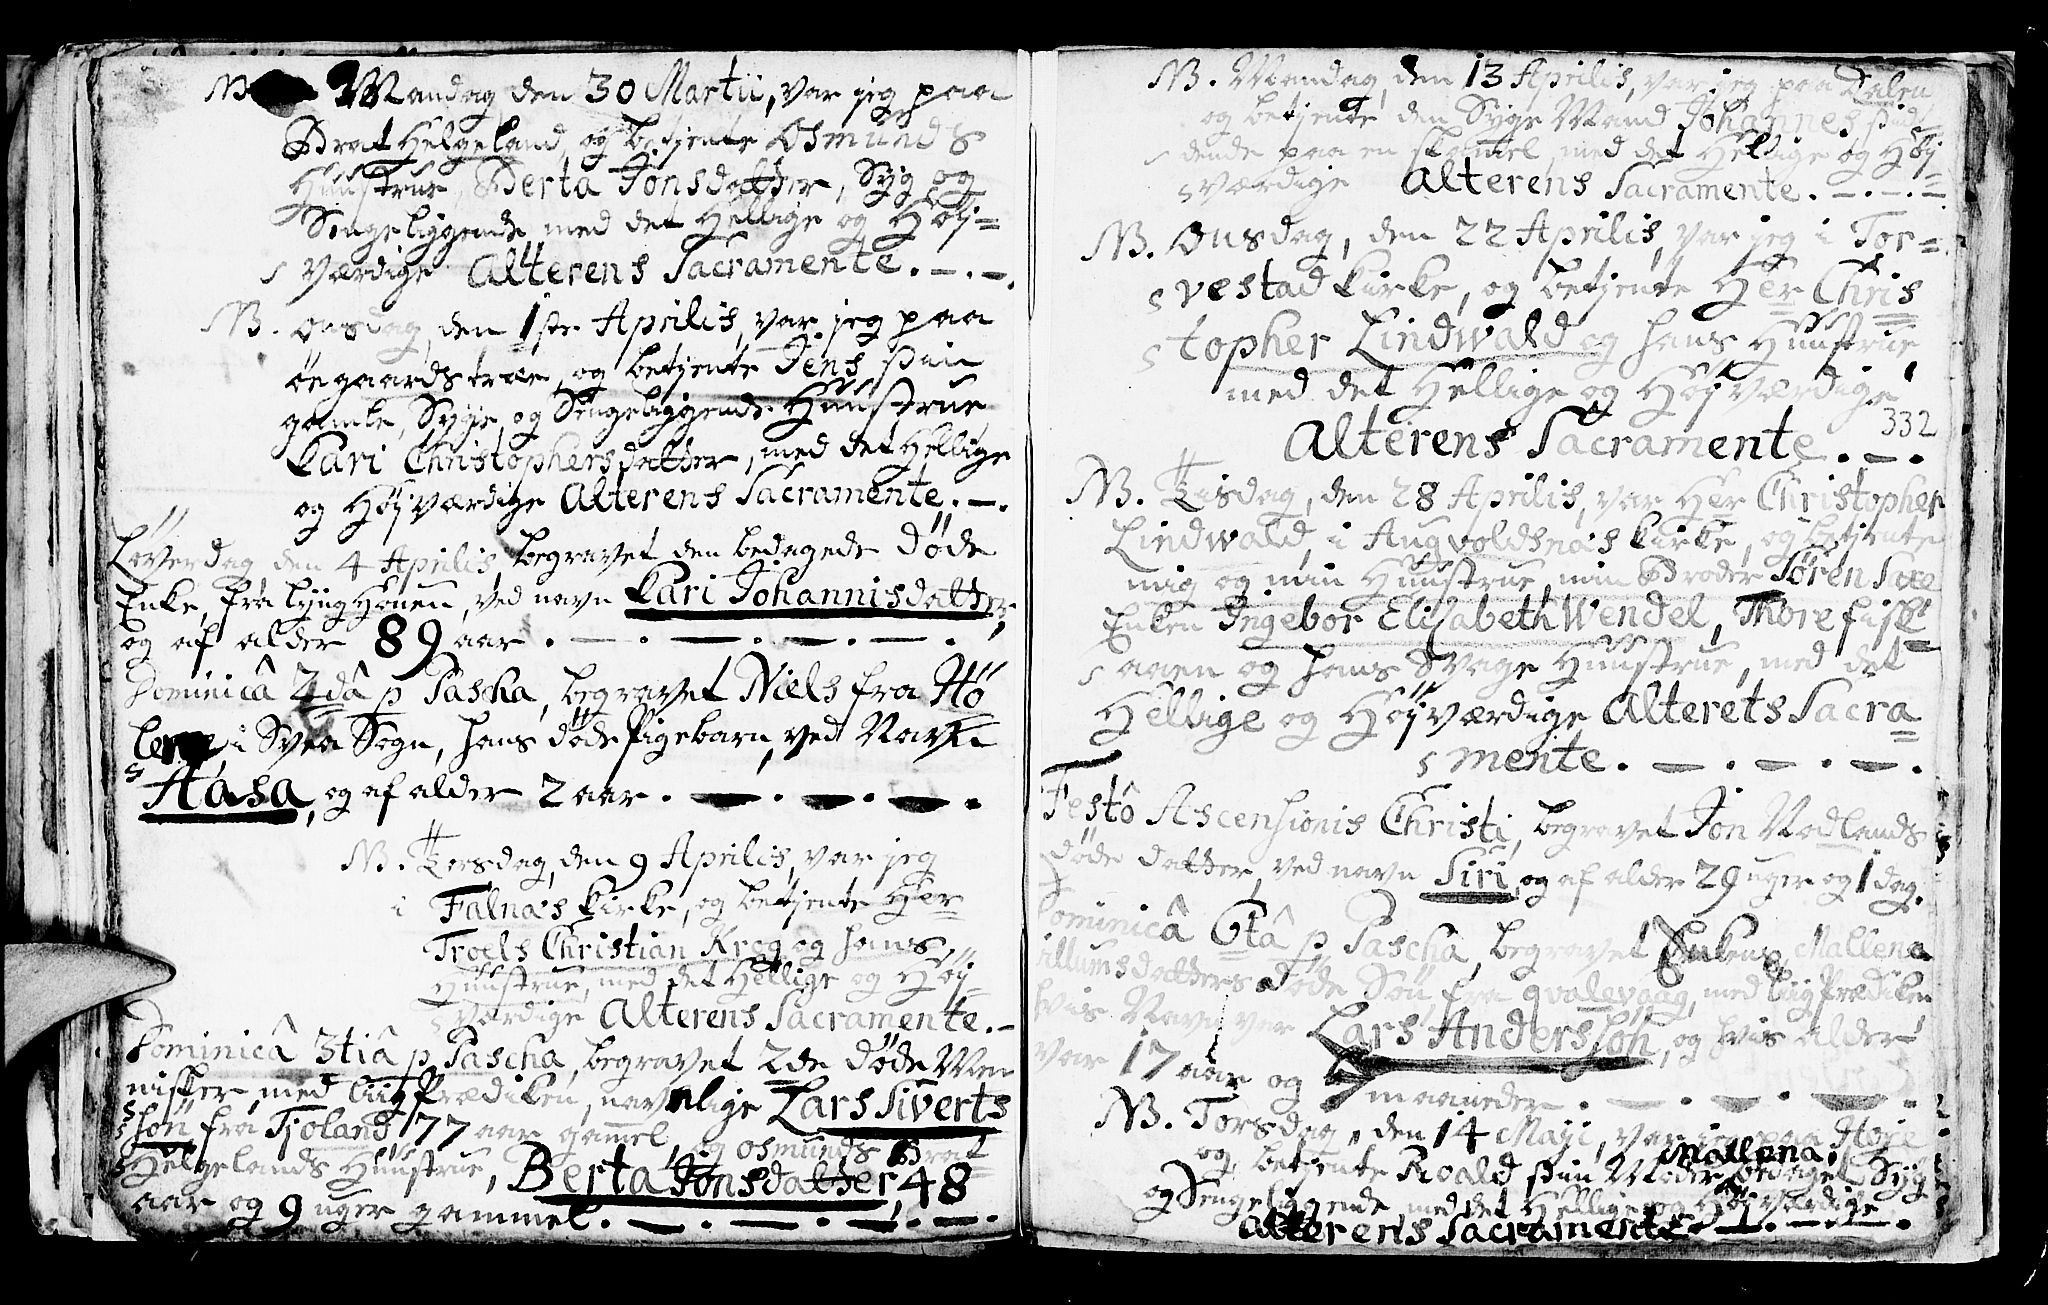 NB. Mandag, den 30 Martii, var jeg paa
Brat Helgeland, og betjente Osmunds
Huustrue, Berta Jonsdatter, Syg og
Sengeliggende med det Hellige og Höj=
værdige Alterens Sacramente. — . —
NB. Onsdag, den 1ste Aprilis, var jeg paa
öegaards træe, og betjente Jens sin
gamle, Syge, og Sengeliggende Huustrue
Kari Christophersdatter, med det Hellige
og Höjværdige Alterens Sacramente. —.
Löverdag den 4 Aprilis, begravet den bedagede döde
Enke, fra Lÿng Houen, ved navn Kari Johannisdatter,
og af alder 89 aar. — . — . — . — .
Dominicâ 2dâ p Pascha, begravet Niels fra Hö
i Svea Sogn, hans döde Pigebarn, ved Navn
Aasa, og af alder 2 aar. — . — . — .
NB. Torsdag, den 9 Aprilis, var jeg
i Falnæs kirke, og betjente Her
Troels Christian Krog og hans
Huustrue, med det Hellige og Höj=
værdige Alterens Sacramente. —
Dominicâ 3tiâ p Pascha, begravet 2de döde Men
nisker, med liigPrædiken, navnlige Lars Siverts
sön fra Tjoland 77 aar gammel, og Osmunds Brat
Helgelands Huustrue, Berta Jonsdatter, 48
aar og 9 uger gammel. — . — . — . — .
NB. Mandag, den 13 Aprilis, var jeg paa Dalen
og betjente den Syge Mand Johannes sid=
dende paa en skammel med det Hellige og Höj
værdige Alterens Sacramente. — . — . =
NB. Onsdag, den 22 Aprilis, var jeg i Tor=
vestad kirke, og betjente Her Chris
topher Lindwald og hans Huustrue
med det Hellige og Höjværdige
332
Alterens Sacramente. — .
NB. Tisdag, den 28 Aprilis, var Her Christopher
Lindwald, i Augvoldsnæs kirke, og betjente
mig og min Huustrue, min Broder Sören Saxe
Enken Ingebor Elisabeth Wendel, Thore fisk
aaen og hans Svage Huustrue, med det
Hellige og Höjværdige Alterets Sacra
mente. — . — . — .
Festô Ascensionis Christi, begravet Jon Nodlands
döde datter, ved navn Siri, og af alder 29 uger og 1 dag.
Dominicâ 6tâ p Pascha, begravet Enkens Mallena
illumsdatters döde Sön fra qvalevaag, med liigPrædiken
hvis Navn var Lars Anderssön, og hvis alder
var 17 aar og maaneder. — . — . — .
NB. Torsdag, den 14 Maji, var jeg paa Höje
og betjente Roald sin Moder Mallena, bedaget, Syg
og Sengeliggende, med det Hellige og Höjværdige
Alterens Sacramente. — . — . — .